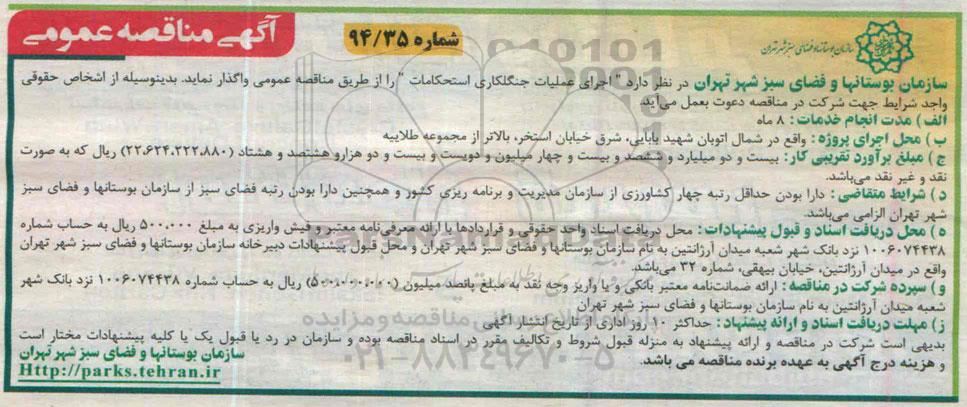 سازمان بوستانها و فضای سبز شهر تهران
شماره ۹۴/۳۵
آگهی مناقصه عمومی
سازمان بوستانها و فضای سبز شهر تهران در نظر دارد " اجرای عملیات جنگلکاری استحکامات " را از طریق مناقصه عمومی واگذار نماید. بدینوسیله از اشخاص حقوقی
واجد شرایط جهت شرکت در مناقصه دعوت بعمل می‌آید.
الف ) مدت انجام خدمات : ۸ ماه
ب ) محل اجرای پروژه : واقع در شمال اتوبان شهید بابایی، شرق خیابان استخر، بالاتر از مجموعه طلاییه
ج ) مبلغ برآورد تقریبی کار: بیست و دو میلیارد و ششصد و بیست و چهار میلیون و دویست و بیست و دو هزارو هشتصد و هشتاد (۲۲،۶۲۴،۲۲۲،۸۸۰) ریال که به صورت
نقد و غیر نقد می‌باشد.
د ) شرایط متقاضی : دارا بودن حداقل رتبه چهار کشاورزی از سازمان مدیریت و برنامه ریزی کشور و همچنین دارا بودن رتبه فضای سبز از سازمان بوستانها و فضای سبز
شهر تهران الزامی می‌باشد.
ه ) محل دریافت اسناد و قبول پیشنهادات : محل دریافت اسناد واحد حقوقی و قراردادها با ارائه معرفی‌نامه معتبر و فیش واریزی به مبلغ ۵۰۰،۰۰۰ ریال به حساب شماره
۱۰۰۶۰۷۴۴۳۸ نزد بانک شهر شعبه میدان آرژانتین به نام سازمان بوستانها و فضای سبز شهر تهران و محل قبول پیشنهادات دبیرخانه سازمان بوستانها و فضای سبز شهر تهران
واقع در میدان آرژانتین، خیابان بیهقی، شماره ۳۲ می‌باشد.
و ) سپرده شرکت در مناقصه : ارائه ضمانت‌نامه معتبر بانکی و یا واریز وجه نقد به مبلغ پانصد میلیون (۵۰۰،۰۰۰،۰۰۰) ریال به حساب شماره ۱۰۰۶۰۷۴۴۳۸ نزد بانک شهر
شعبه میدان آرژانتین به نام سازمان بوستانها و فضای سبز شهر تهران
ز ) مهلت دریافت اسناد و ارائه پیشنهاد : حداکثر ۱۰ روز اداری از تاریخ انتشار آگهی
بدیهی است شرکت در مناقصه و ارائه پیشنهاد به منزله قبول شروط و تکالیف مقرر در اسناد مناقصه بوده و سازمان در رد یا قبول یک یا کلیه پیشنهادات مختار است
و هزینه درج آگهی به عهده برنده مناقصه می باشد.
سازمان بوستانها و فضای سبز شهر تهران
Http://parks.tehran.ir
۰۲۱-۸۸۳۴۹۶۷۰-۵